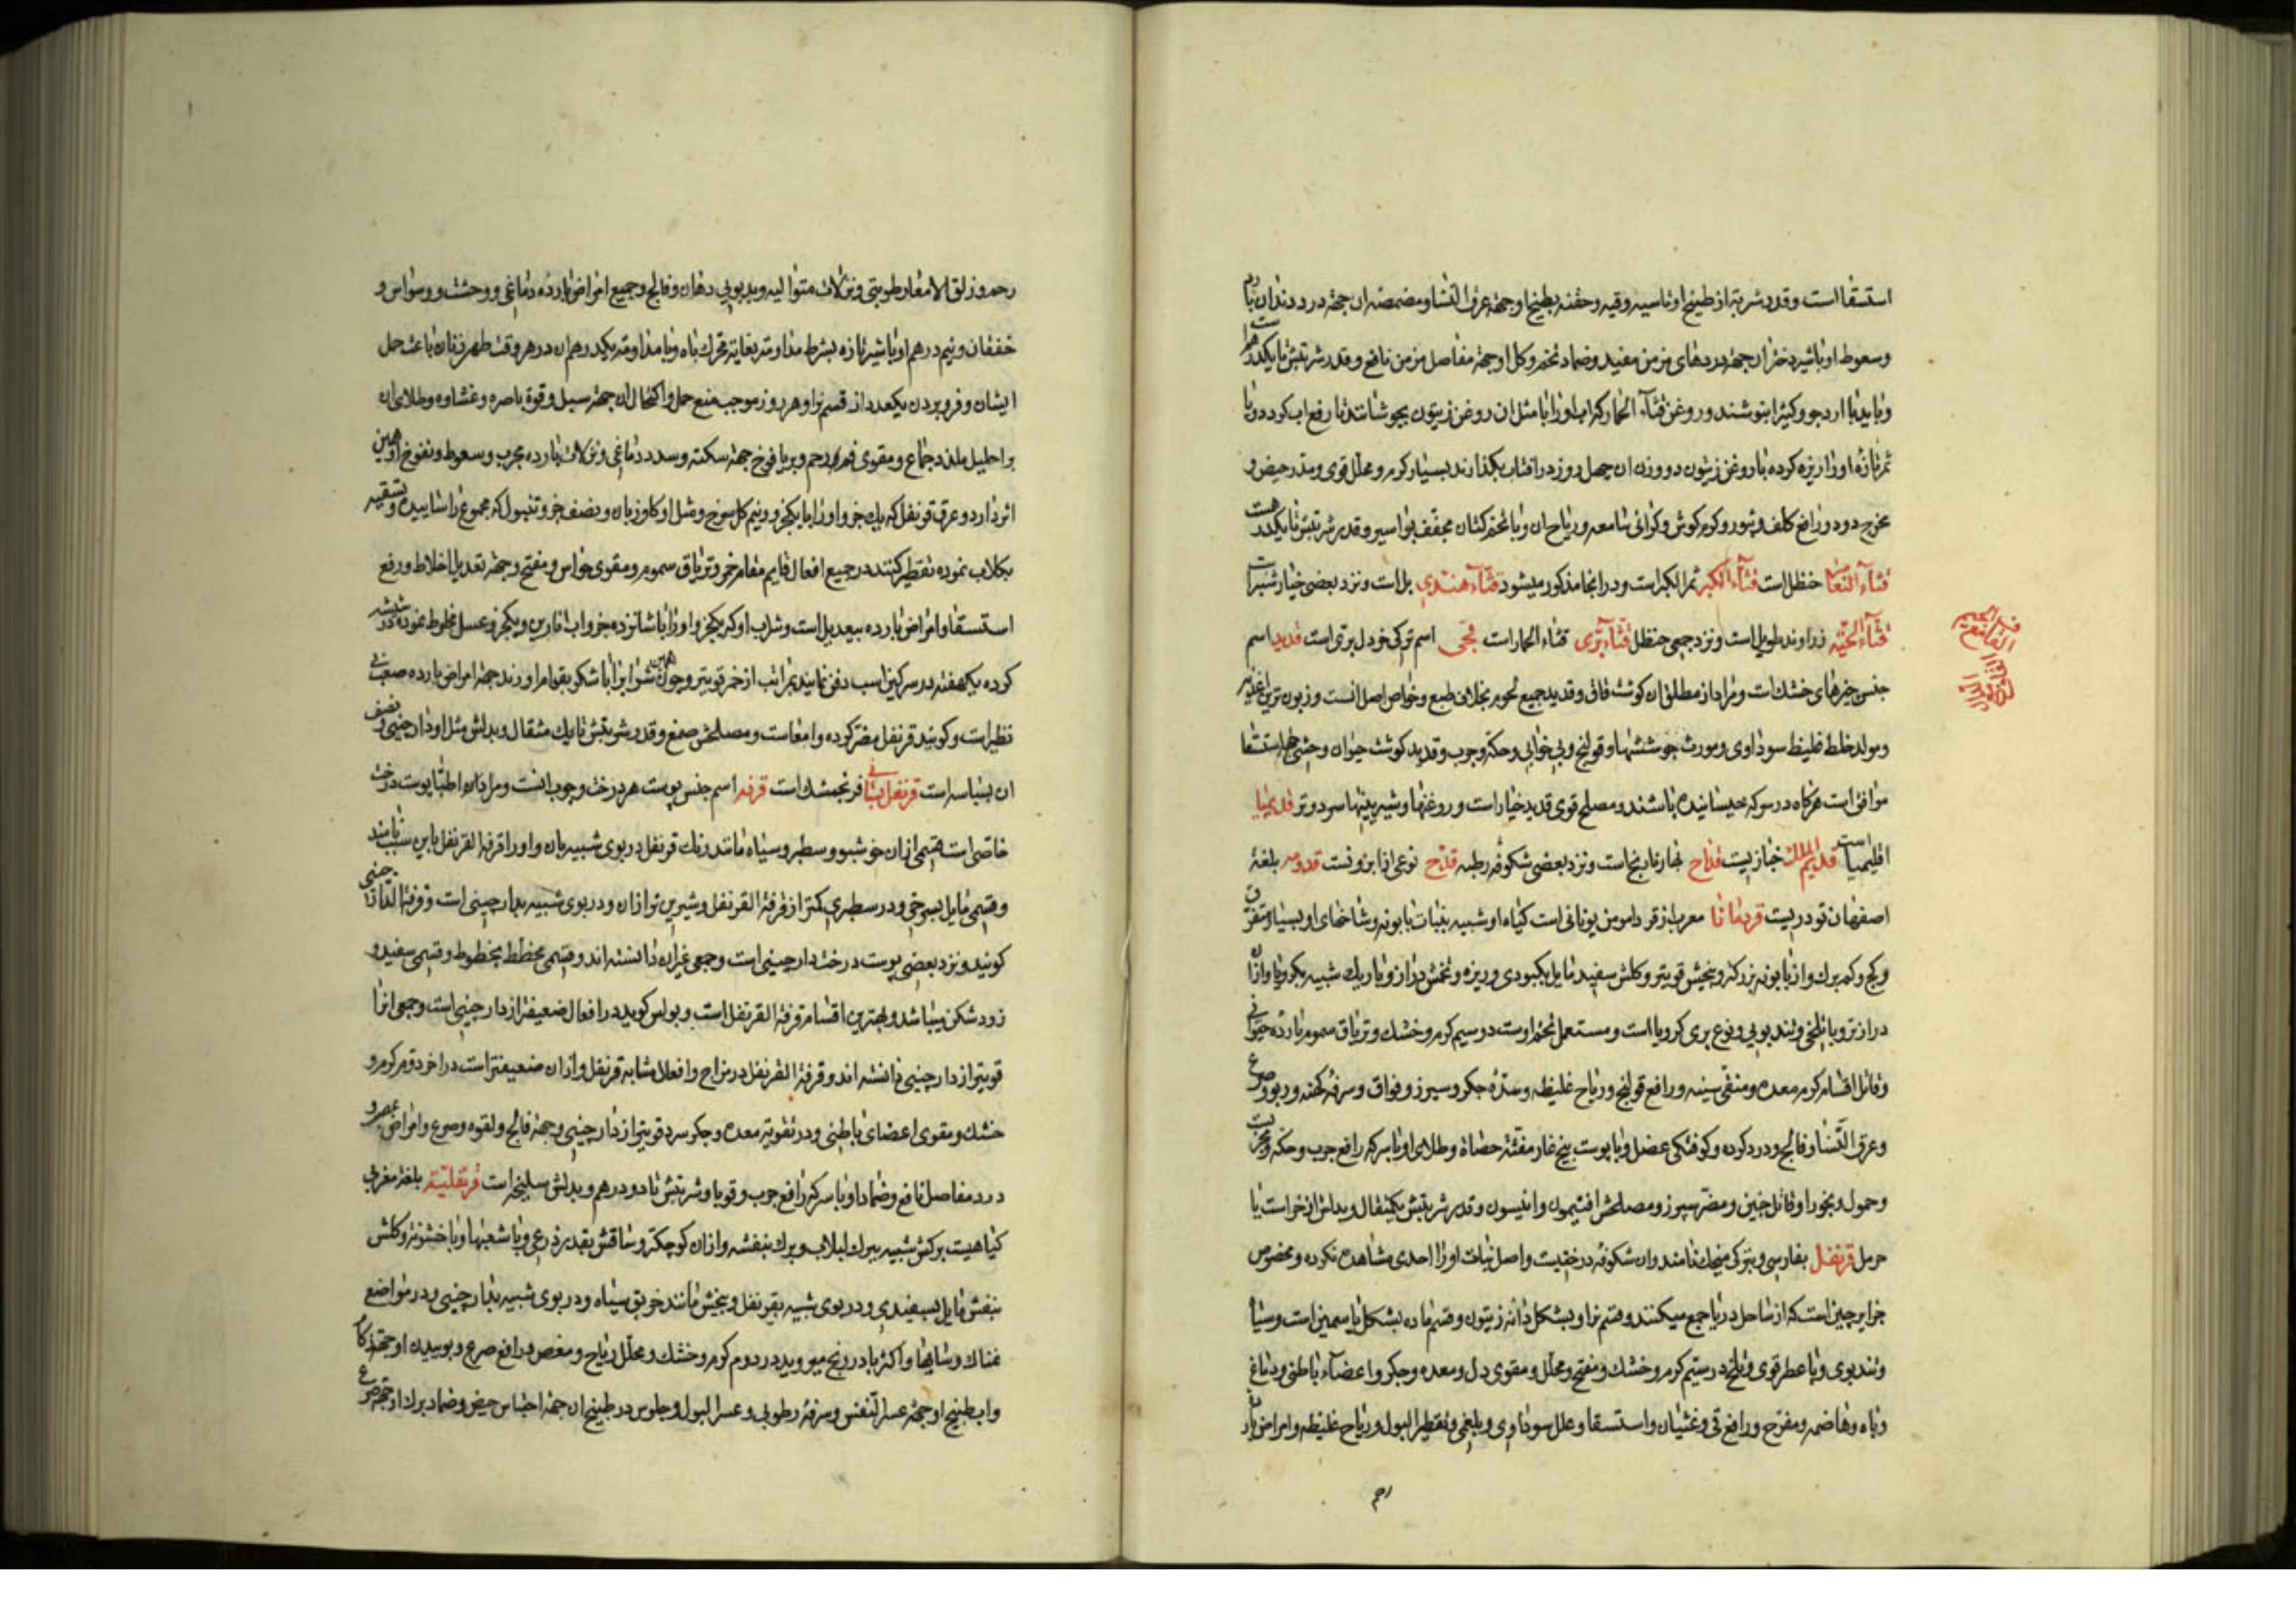 استسقا است و قدر شربته از طبیخ او تا سیه وقیه و حقنه بطبیخ او جهة عرق النسا و مضمضه ان جهة درد دندان
وسعوط او با شیر دختران جهة دردهای مزمن مفید و ضماد تخم و کل او جهة مفاصل مزمن نافع و قدر شربتش تا یکدرهم
و باید با ارد جو و کثیرا بنوشند و روغن قثاء الحمار که اب او را با مثل ان روغن زیتون بجوشانند تا رفع اب کردد و یا
ثمر تازه او را ریزه کرده با روغن زیتون دو وزن ان چهل روز در افتاب بکذارند بسیار کرم و محلل قوی و مدر حیض و
مخرج دود و رافع کلف و بثور و کرم کوش و کرانی سامعه و ریاح ان و با تخم کتان مجفف بواسیر و قدر شربتش تا یکدرهم است
قثاء النعام حنظل است قثاء الکبر ثمر الکبر است و در انجا مذکور میشود قثاء هندی بل است و نزد بعضی خیار شنبر است
قثاء الحیه زراوند طویل است و نزد جمعی حنظل قثاء بری قثاء الحمار است قجی اسم ترکی خردل بری است قدید اسم
جنس چیزهای خشک است و مراد از مطلق ان کوشت قاق و قدید جمیع لحوم بخلاف طبع و خواص اصل انست و زبون ترین اغذیه
و مولد خلط غلیظ سوداوی و مورث جوششها و قولنج و بی خوابی و حکه و جرب و قدید کوشت حیوان وحشی جهة استسقا
موافق است هرکاه در سرکه خیسانیده باشند و مصلح قوی قدید خیار است و روغنها و شیرینیها سرد و تر قدیمیا
اقلیمیا است قدیم الملک خبازیست قداح بهار نارنج است و نزد بعضی شکوفه رطبه قدح نوعی از ابزونست قدومه بلغة
اصفهان تودریست قردمانا معرب از قردامومن یونانی است کیاه او شبیه بنبات بابونه و شاخهای او بسیار و متفرق
و کج و کم برک و از بابونه بزرکتر و بیخش قویتر و کلش سفید مایل بکبودی و ریزه و تخمش دراز و باریک شبیه بکرویا و از ان
درازتر و با تلخی و تندبویی و نوع بری کرویا است و مستعمل تخم اوست در سیم کرم و خشک و تریاق سموم بارده حیوانی
و قاتل اقسام کرم معده و منقی سینه و رافع قولنج و ریاح غلیظه و سدّه جکر و سپرز و فواق و سرفه کهنه و ربو و صرع
و عرق النّسا و فالج و درد کرده و کوفتکی عضل و با پوست بیخ غار مفتّت حصاة و طلای او با سرکه رافع جرب و حکه
و حمول و بخور او قاتل جنین و مضر سپرز و مصلحش افتیمون و انیسون و قدر شربتش یکمثقال و بدلش اذخر است یا
حرمل قرنفل بفارسی و بترکی میخک نامند و ان شکوفه درختیست و اصل نبات او را احدی مشاهده نکرده و مخصوص
جزایر چین است که از ساحل دریا جمع میکنند و قسم نر او بشکل دانه زیتون و قسم ماده بشکل یاسمین است و سیاه
و تندبوی و با عطر قوی و تلخ در سیّم کرم و خشک و مفتح و محلل و مقوی دل و معده و جکر و اعضاء باطنی و دماغ
و باه و هاضمه و مفرّح و رافع قی و غثیان و استسقا و علل سوداوی و بلغمی و تقطیر البول و ریاح غلیظه و امراض بارده
رحم
رحم و زلق الامعاء رطوبتی و نزلات متوالیه و بدبویی دهان و فالج و جمیع امراض بارده دماغی و وحشت و وسواس و
خفقان و نیم درهم او با شیر تازه بشرط مداومت بغایة محرک باه و با مداومت یکدرهم ان در هر وقت طهر زنان باعث حمل
ایشان و فرو بردن یکعدد از قسم نر او هر روز موجب منع حمل و اکتحال ان جهة سبل و قوة باصره و غشاوه و طلای ان
بر احلیل ملذد جماع و مقوی فم رحم و بر یافوخ جهة سکته و سدد دماغی و نزلات بارده مجرب و سعوط و نفوخ او همین
اثر دارد و عرق قرنفل که یک جزو او را با یکجزو و نیم کل سرخ و مثل او کاوزبان و نصف جزو تنبول که مجموع را سائیده و تسقیه
بکلاب نموده تقطیر کنند در جمیع افعال قایم مقام خمر و تریاق سموم و مقوی حواس و مفتح و جهة تعدیل اخلاط و رفع
استسقا و امراض بارده بیعدیل است و شراب او که یکجزو او را با شانزده جزو اب انارین و یکجزو عسل مخلوط نموده در شیشه
کرده یکهفته در سرکین اسب دفن نمایند بمراتب از خمر قویتر و چون همین شراب را با شکر بقوام اورند جهة امراض بارده صعب بی
نظیر است و کویند قرنفل مضر کرده و امعاست و مصلحش صمغ و قدر شربتش تا یک مثقال و بدلش مثل او دارچینی و نصف
ان بسباسه است قرنفل بستانی فرنجمشک است قرفه اسم جنس پوست هر درخت و چوب انست و مراد اطبا پوست درخت
خاصی است قسمی از ان خوشبو و سطبر و سیاه مانند رنک قرنفل در بوی شبیه بان و او را قرفة القرنفل باین سبب نامند
و قسمی مایل بسرخی و در سطبری کمتر از قرفة القرنفل و شیرین تر از ان و در بوی شبیه بدارچینی است و قرفة الدارچینی
کویند و نزد بعضی پوست درخت دارچینی است و جمعی غیر ان دانسته اند و قسمی مخطط بخطوط و قسمی سفید و
زودشکن میباشد و بهترین اقسام قرفة القرنفل است و بولس کوید در افعال ضعیفتر از دارچینی است و جمعی انرا
قویتر از دارچینی دانسته اند و قرفة القرنفل در مزاج و افعال مشابه قرنفل و از ان ضعیفتر است در اخر دوم کرم و
خشک و مقوی اعضای باطنی و در تقویة معده و جکر سرد قویتر از دارچینی و جهة فالج و لقوه و صرع و امراض عصب و
درد مفاصل نافع و ضماد او با سرکه رافع جرب و قوبا و شربتش تا دو درهم و بدلش سلیخه است قرنفلیّه بلغة مغرب
کیاهیست برکش شبیه ببرک لبلاب و برک بنفشه و از ان کوچکتر و ساقش بقدر ذرعی و با شعبها و با خشونة و کلش
بنفش مایل بسفیدی و در بوی شبیه بقرنفل و بیخش مانند خربق سیاه و در بوی شبیه بدارچینی و در مواضع
نمناک و سایها و اکثر با درونج میروید در دوم کرم و خشک و محلل ریاح و مغص و رافع صرع و بوییدن او جهة زکام
و اب طبیخ او جهة عسر النفس و سرفه رطوبی و عسر البول و جلوس در طبیخ ان جهة احتباس حیض و ضماد برک او جهة صرع